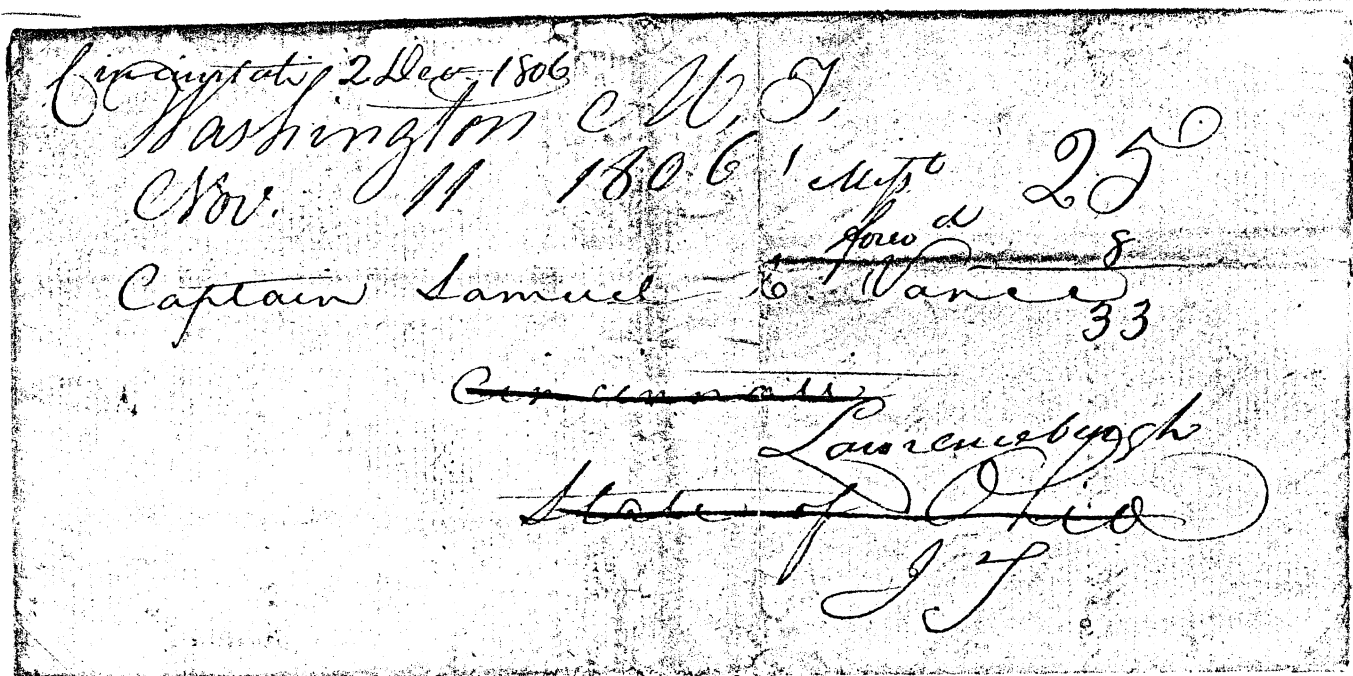 Cincinnati 2 Dec 1806
Washington M. T.
Nov. 11 1806 Misst 25
forwd 8
Captain Samuel C. Vance
33
Cincinnati
Lawrenceburgh
State of Ohio
I T